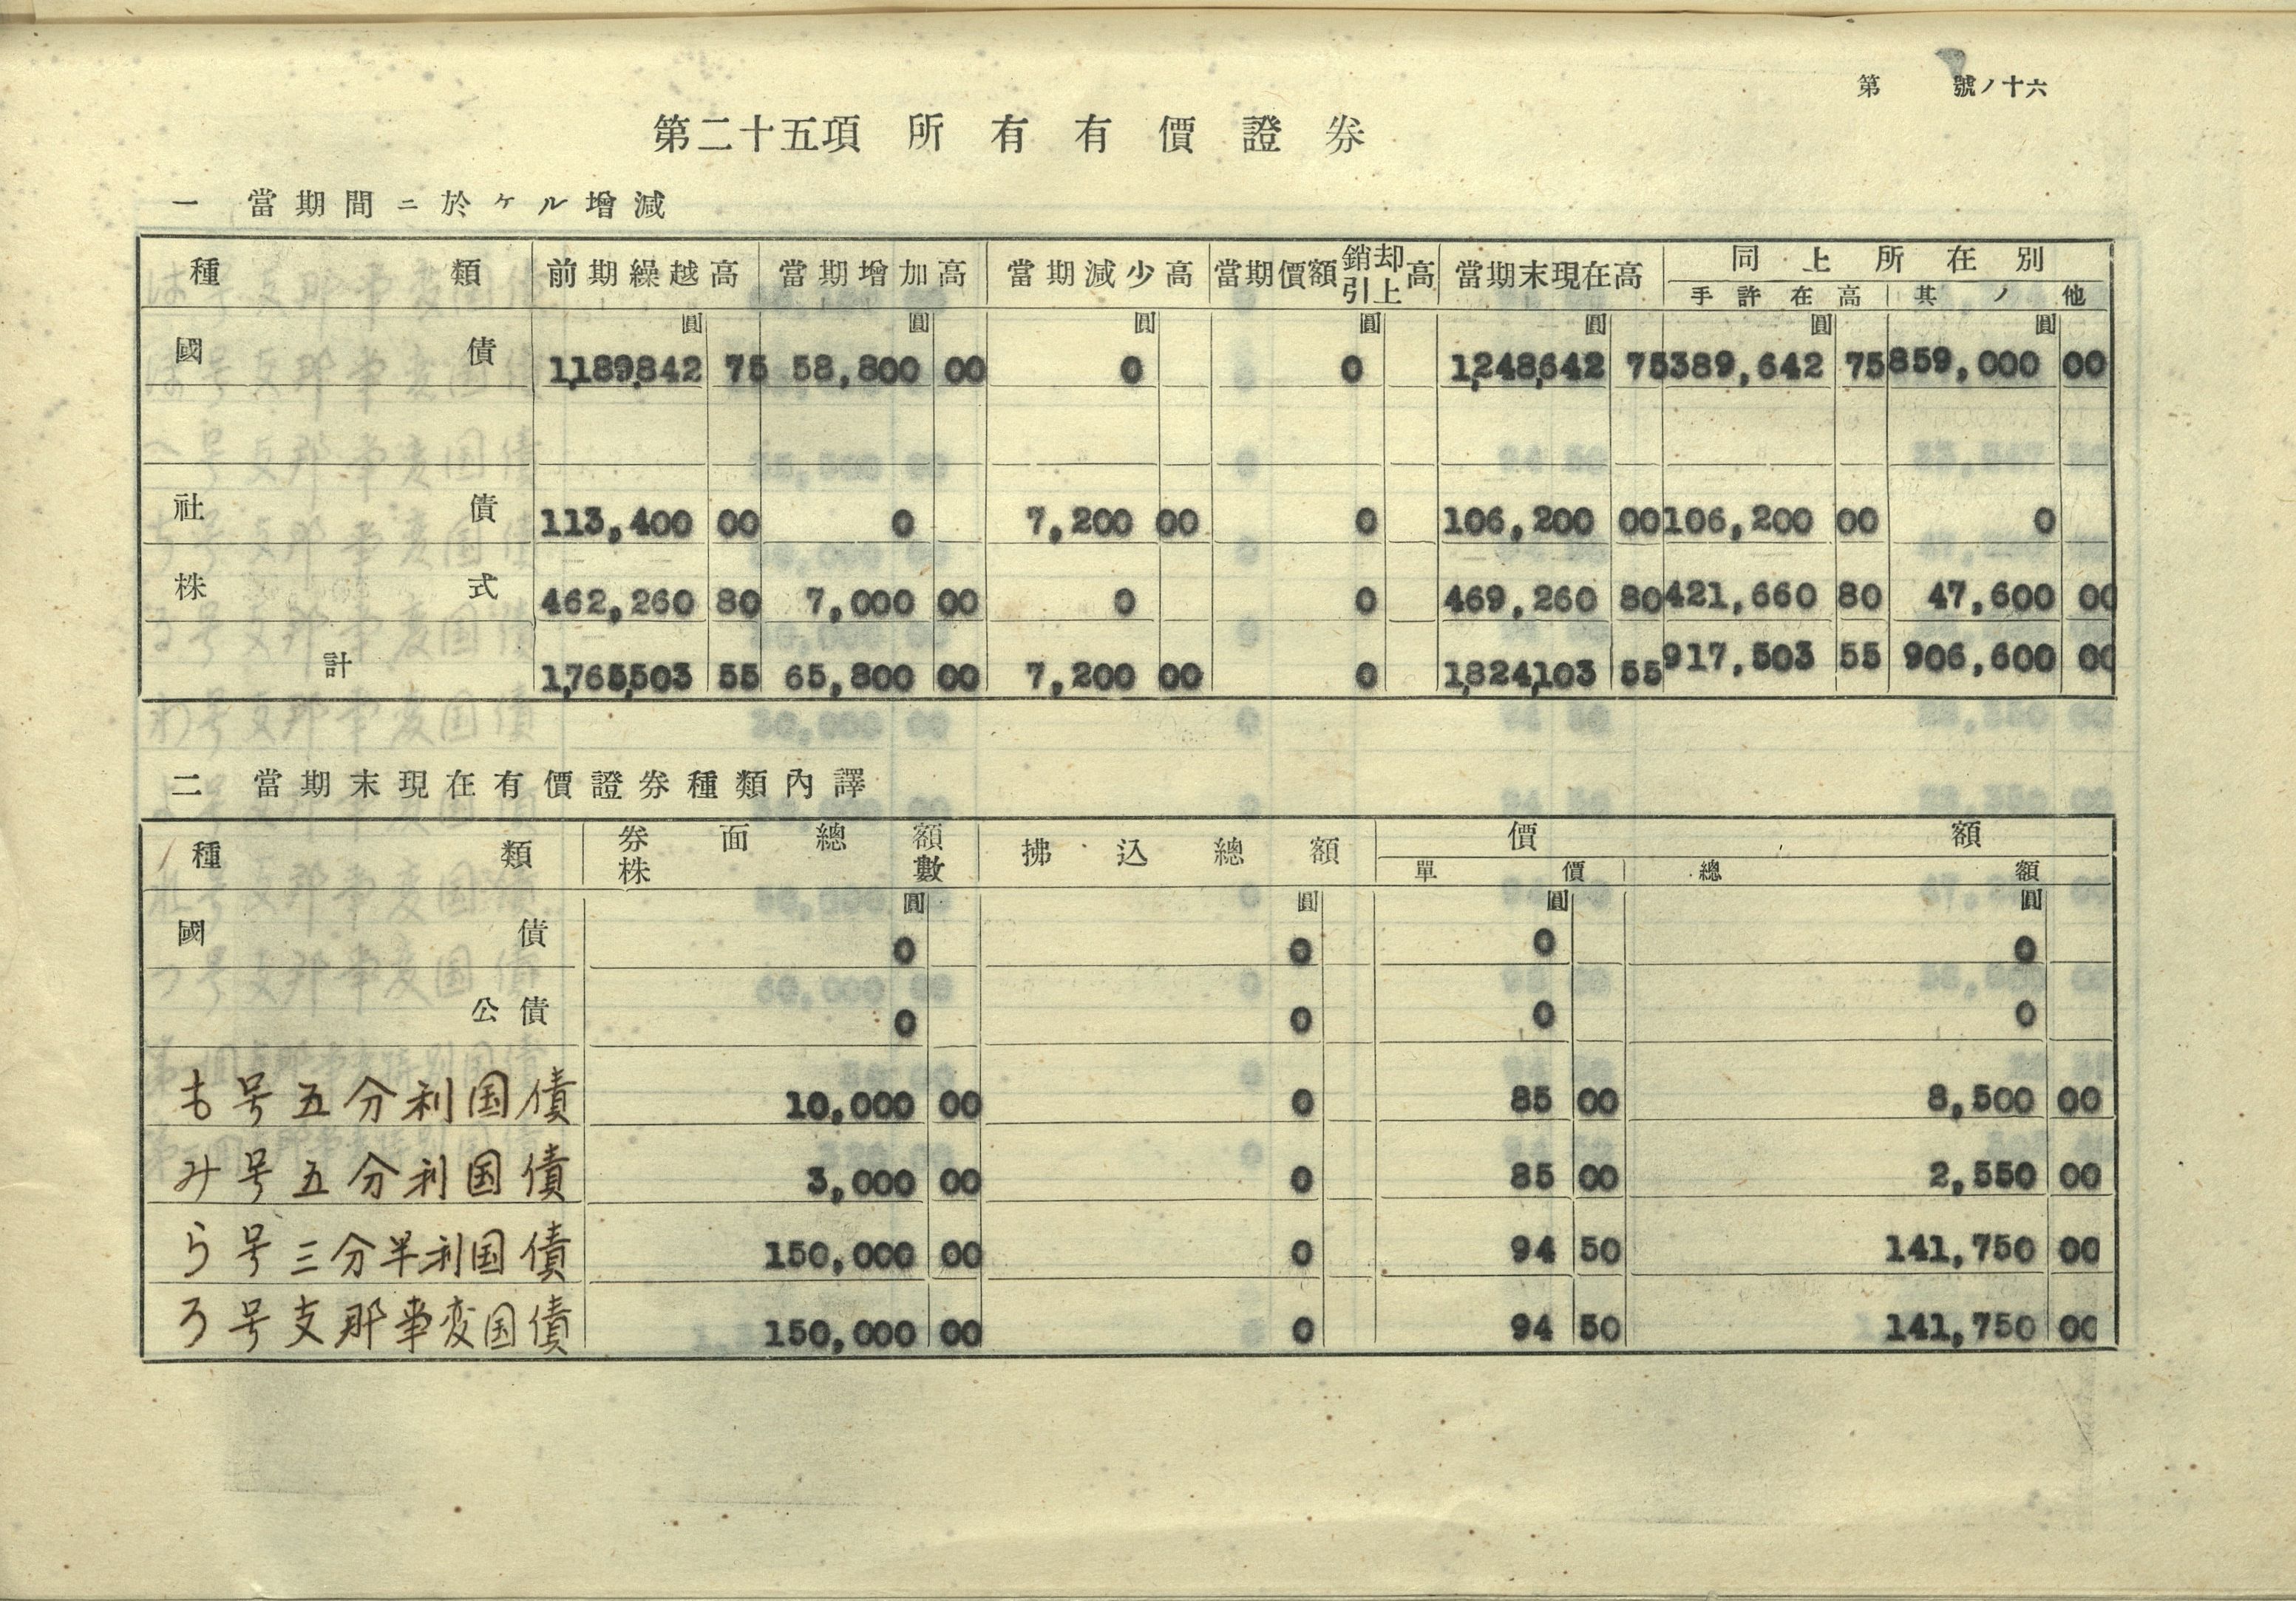 第 號ノ十六
第二十五項 所有有價證券
一 當期間ニ於ケル增減
種類 前期繰越高 當期增加高 當期減少高 當期價額銷却引上高 當期末現在高 同上所在別
手許在高 其ノ他
圓 圓 圓 圓 圓 圓 圓
國債 1,189,842 75 58,800 00 0 0 1,248,642 75 389,642 75 859,000 00
社債 113,400 00 0 7,200 00 0 106,200 00 106,200 00 0
株式 462,260 80 7,000 00 0 0 469,260 80 421,660 80 47,600 00
計 1,765,503 55 65,800 00 7,200 00 0 1,824,103 55 917,503 55 906,600 00
二 當期末現在有價證券種類內譯
種類 券面總額 株數 拂込總額 價額
單價 總額
圓 圓 圓 圓
國債 0 0 0 0
公債 0 0 0 0
も号五分利国債 10,000 00 0 85 00 8,500 00
み号五分利国債 3,000 00 0 85 00 2,550 00
ら号三分半利国債 150,000 00 0 94 50 141,750 00
ろ号支那事変国債 150,000 00 0 94 50 141,750 00